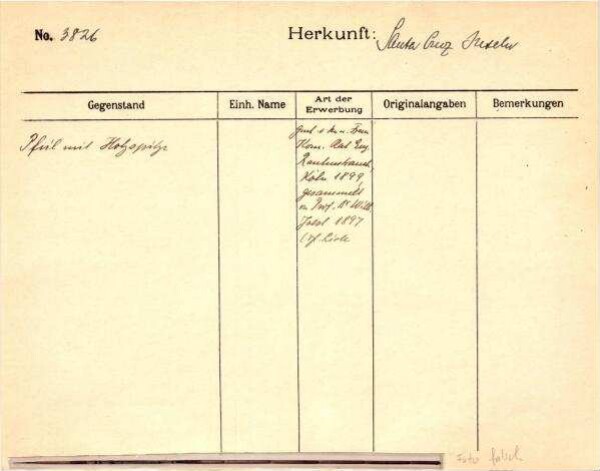 No. 3826
Herkunft: Santa Cruz Inseln
Gegenstand Einh. Name Art der Erwerbung Originalangaben Bemerkungen
Pfeil mit Holzspitze
Kom. Rat Eug.
Rautenstrauch,
Köln 1899,
gesammelt
v. Prof. Dr Wilh.
Joest 1897
Foto falsch